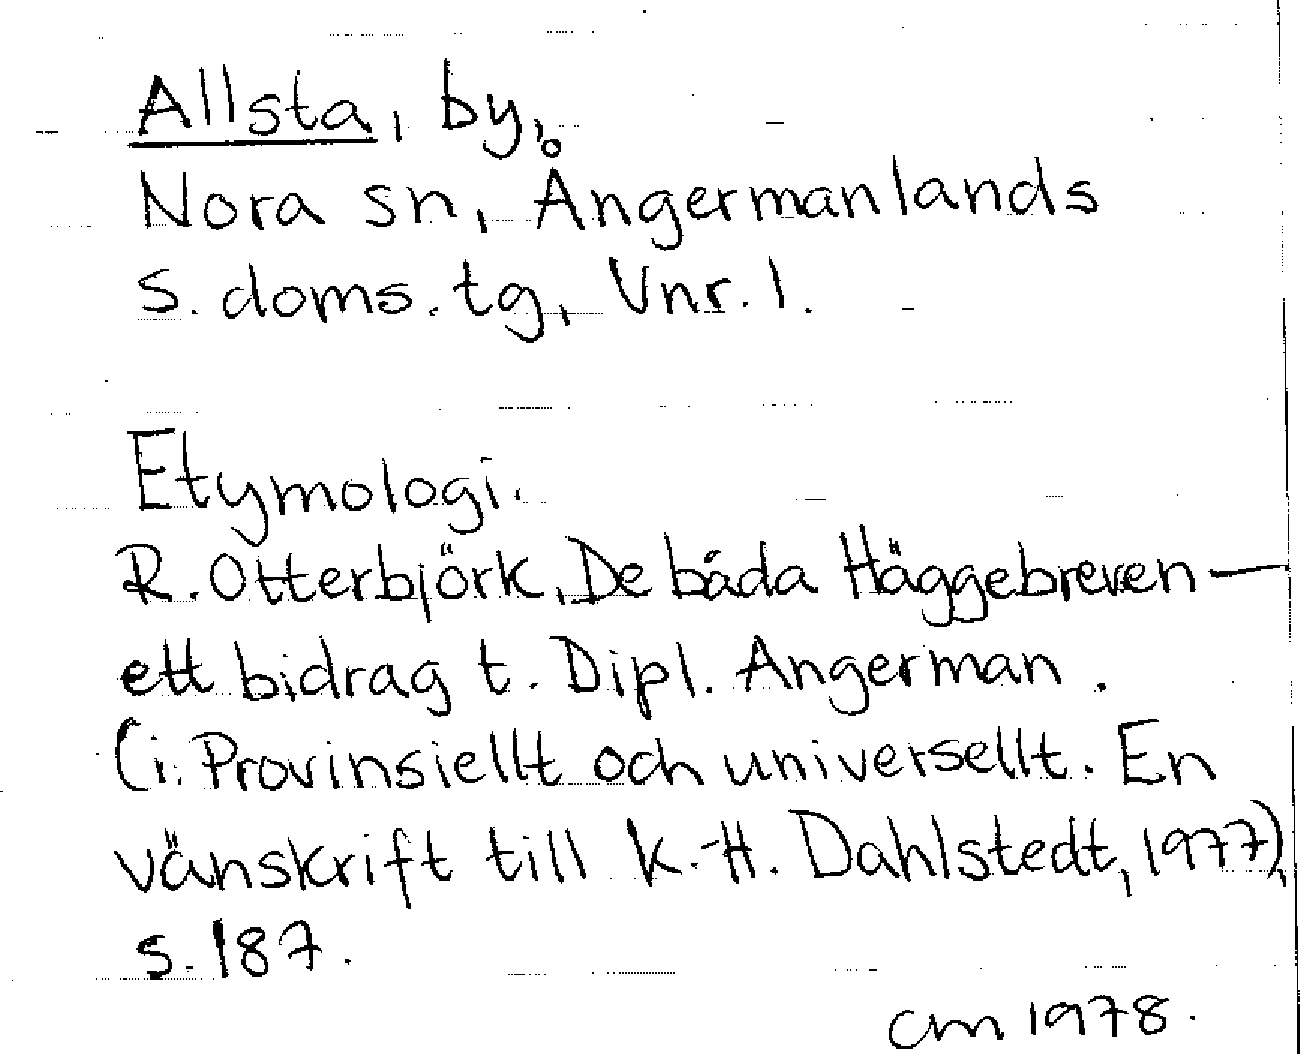 Allsta, by,
Nora sn, Ångermanlands
s. doms. tg, Vnr. 1.
Etymologi.
R. Otterbjörk, De båda Häggebreven —
ett bidrag t. Dipl. Angerman.
(i: Provinsiellt och universellt. En
vänskrift till K.-H. Dahlstedt, 1977),
s. 187.
cm 1978.